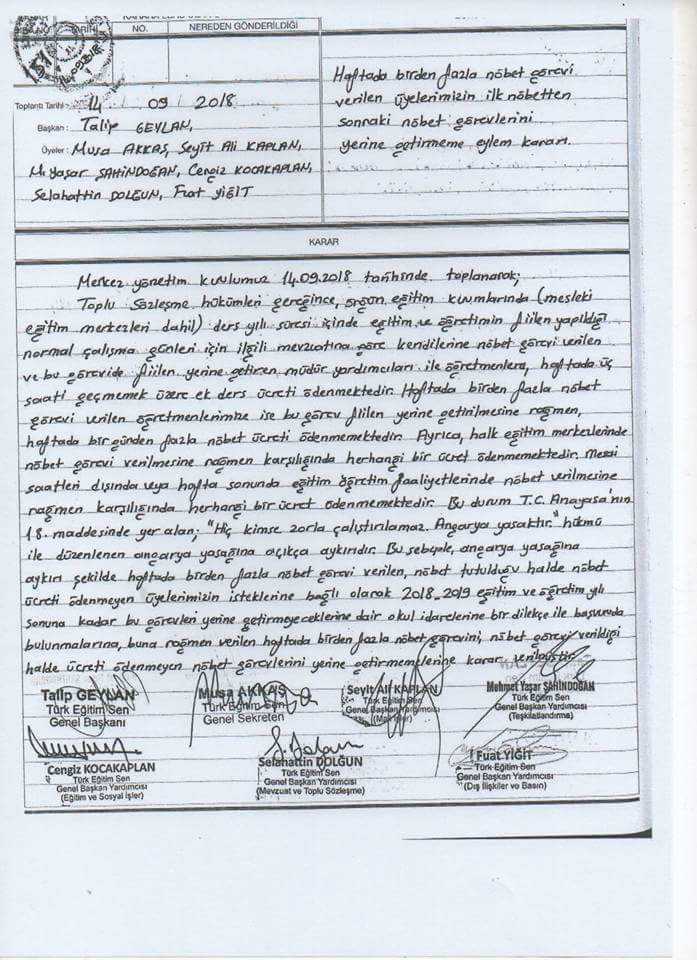 NO.
NEREDEN GÖNDERİLDİĞİ
Toplantı Tarihi: 14 09 2018
Başkan: Talip GEYLAN,
Üyeler: Musa AKKAŞ, Seyit Ali KAPLAN,
M. Yaşar ŞAHİNDOĞAN, Cengiz KOCAKAPLAN,
Selahattin DOLGUN, Fuat YİĞİT
Haftada birden fazla nöbet görevi
verilen üyelerimizin ilk nöbetten
sonraki nöbet görevlerini
yerine getirmeme eylem kararı.
KARAR
Merkez yönetim kurulumuz 14.09.2018 tarihinde toplanarak;
Toplu Sözleşme hükümleri gereğince, örgün eğitim kurumlarında (mesleki
eğitim merkezleri dahil) ders yılı süresi içinde eğitim ve öğretimin fiilen yapıldığı
normal çalışma günleri için ilgili mevzuatına göre kendilerine nöbet görevi verilen
ve bu görevide fiilen yerine getiren müdür yardımcıları ile öğretmenlere, haftada üç
saati geçmemek üzere ek ders ücreti ödenmektedir. Haftada birden fazla nöbet
görevi verilen öğretmenlerimize ise bu görev fiilen yerine getirilmesine rağmen,
haftada bir günden fazla nöbet ücreti ödenmemektedir. Ayrıca, halk eğitim merkezlerinde
nöbet görevi verilmesine rağmen karşılığında herhangi bir ücret ödenmemektedir. Mesai
saatleri dışında veya hafta sonunda eğitim öğretim faaliyetlerinde nöbet verilmesine
rağmen karşılığında herhangi bir ücret ödenmemektedir. Bu durum T.C. Anayasa'nın
18. maddesinde yer alan; "Hiç kimse zorla çalıştırılamaz. Angarya yasaktır." hükmü
ile düzenlenen angarya yasağına açıkça aykırıdır. Bu sebeple, angarya yasağına
aykırı şekilde haftada birden fazla nöbet görevi verilen, nöbet tutulduğu halde nöbet
ücreti ödenmeyen üyelerimizin isteklerine bağlı olarak 2018-2019 eğitim ve öğretim yılı
sonuna kadar bu görevleri yerine getirmeyeceklerine dair okul idarelerine bir dilekçe ile başvuruda
bulunmalarına, buna rağmen verilen haftada birden fazla nöbet görevini, nöbet görevi verildiği
halde ücreti ödenmeyen nöbet görevlerini yerine getirmemelerine karar verilmiştir.
Talip GEYLAN
Türk Eğitim Sen
Genel Başkanı
Musa AKKAŞ
Türk Eğitim Sen
Genel Sekreteri
Seyit Ali KAPLAN
Türk Eğitim Sen
Genel Başkan Yardımcısı
(Mali İşler)
Mehmet Yaşar ŞAHİNDOĞAN
Türk Eğitim Sen
Genel Başkan Yardımcısı
(Teşkilatlandırma)
Cengiz KOCAKAPLAN
Türk Eğitim Sen
Genel Başkan Yardımcısı
(Eğitim ve Sosyal İşler)
Selahattin DOLGUN
Türk Eğitim Sen
Genel Başkan Yardımcısı
(Mevzuat ve Toplu Sözleşme)
Fuat YİĞİT
Türk Eğitim Sen
Genel Başkan Yardımcısı
(Dış İlişkiler ve Basın)